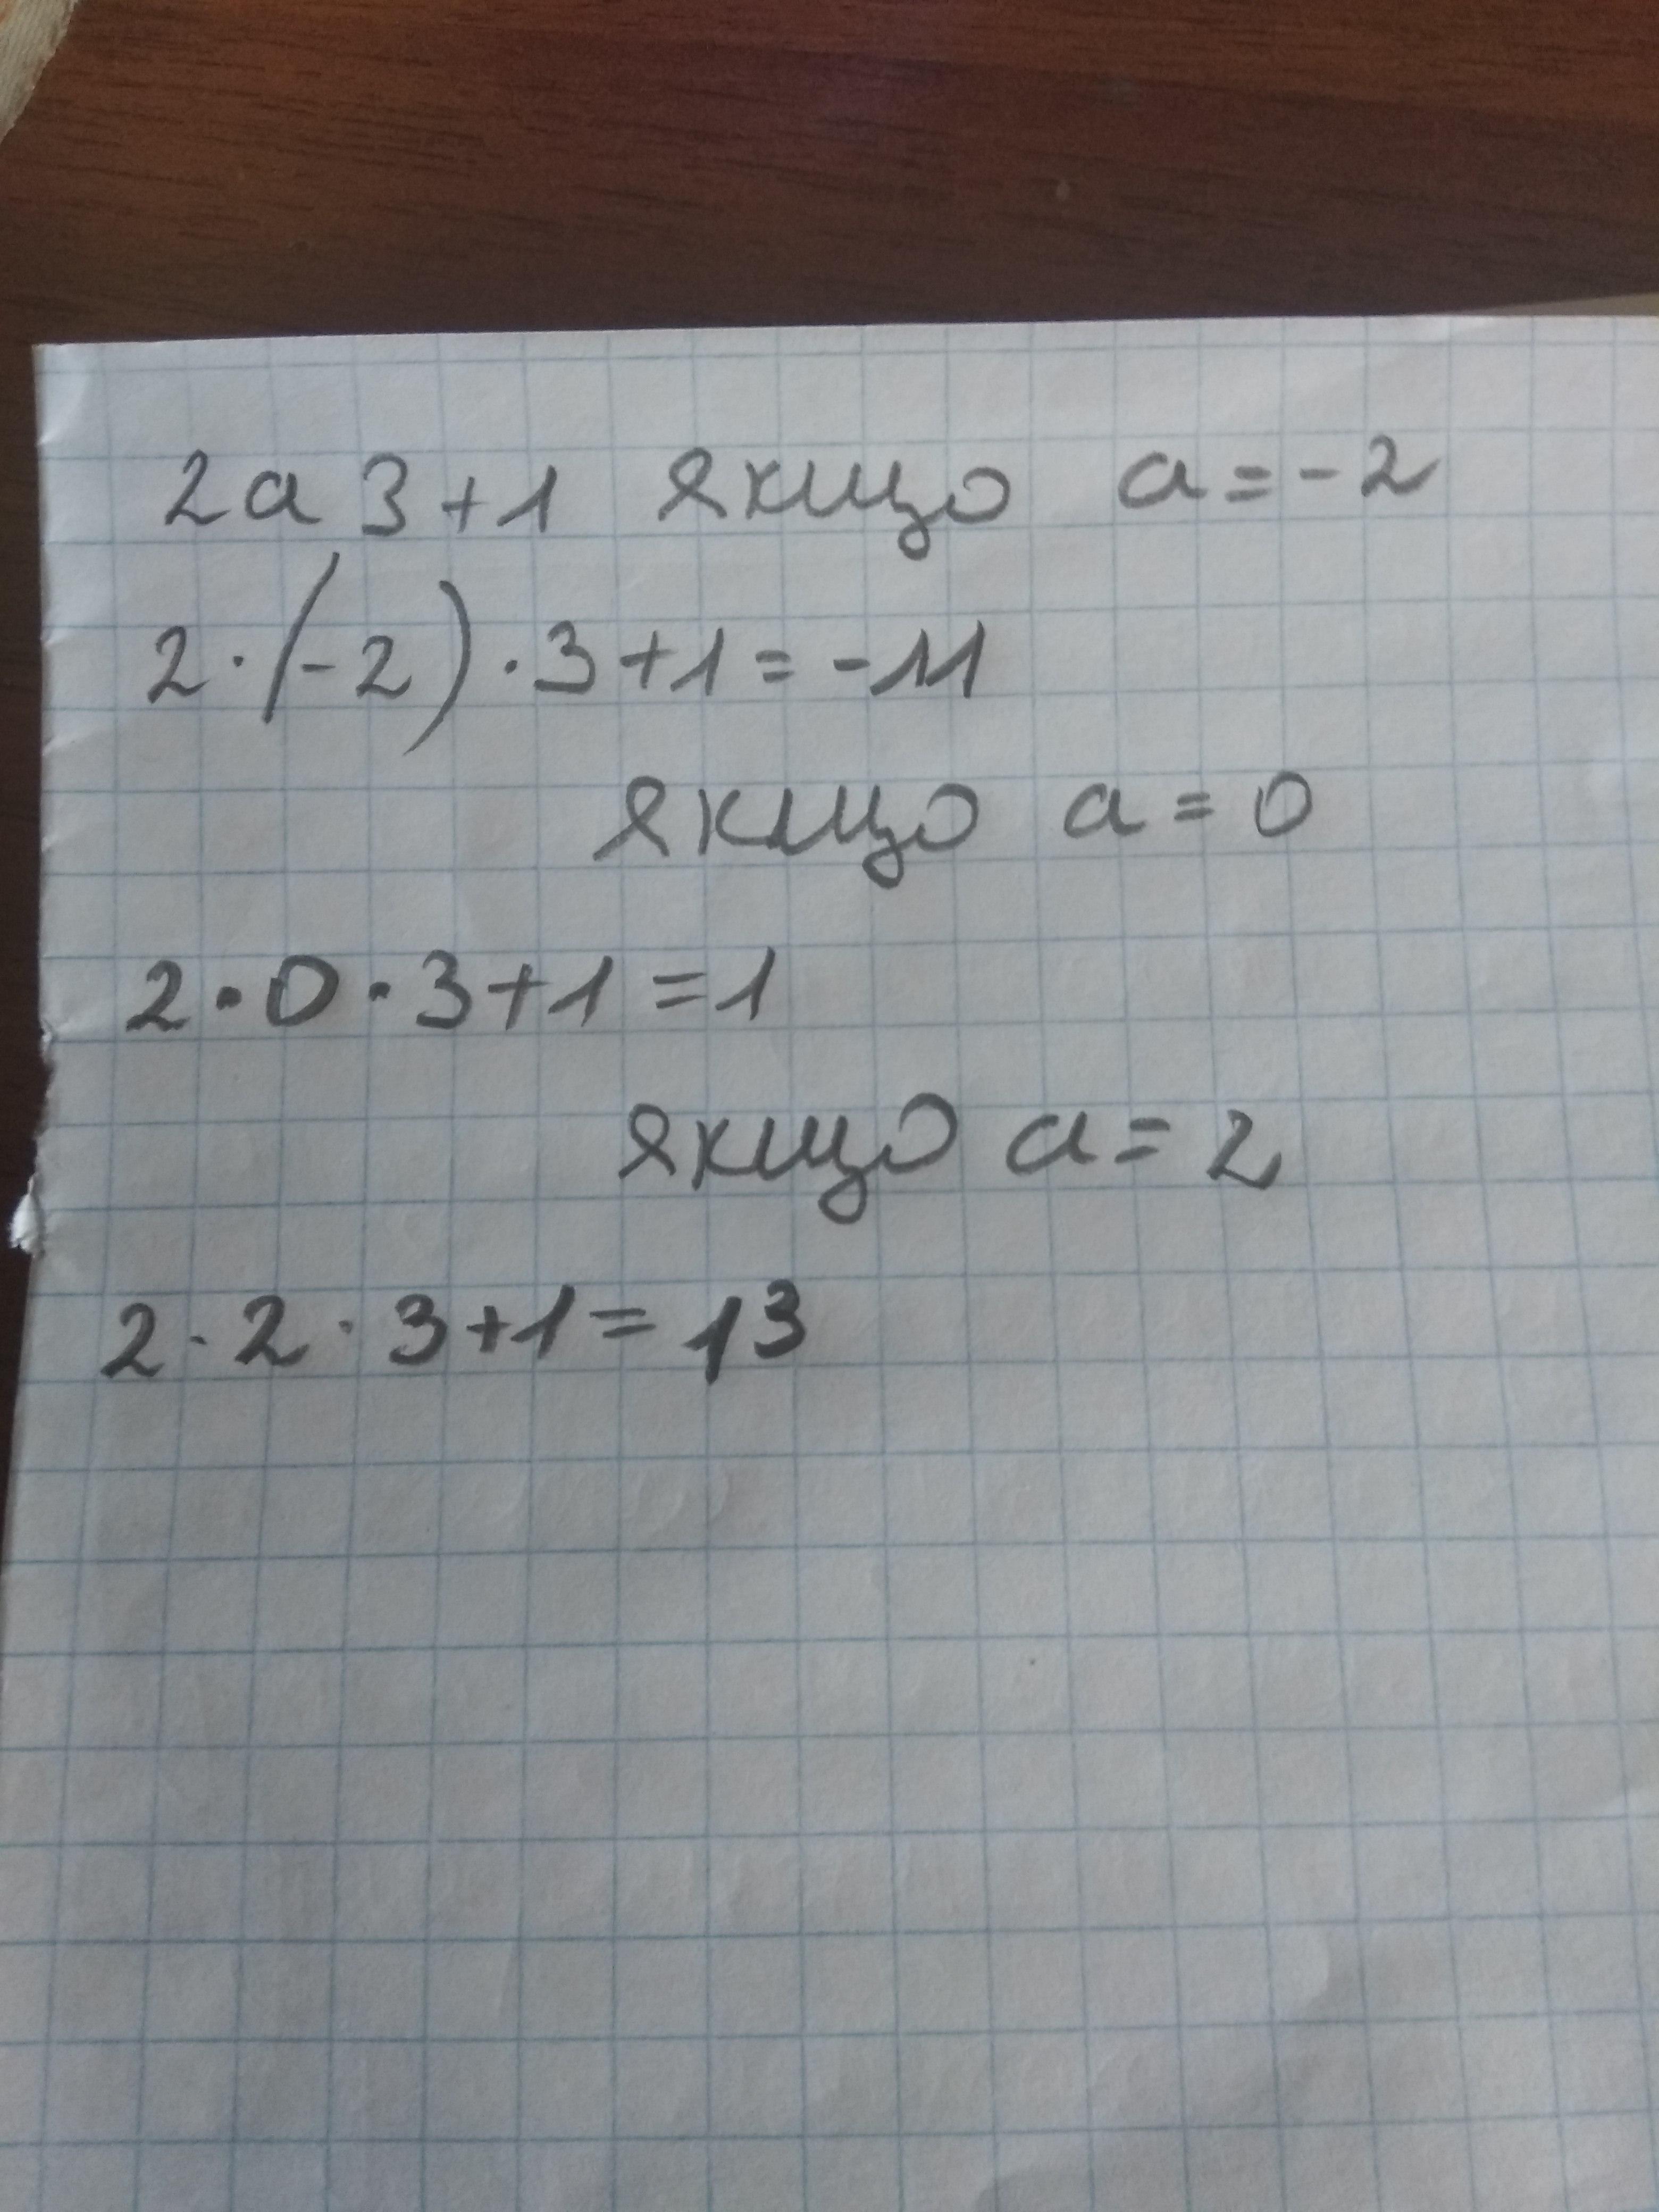 2a 3+1 якщо a=-2
2·(-2)·3+1=-11
якщо a=0
2·0·3+1=1
якщо a=2
2·2·3+1=13